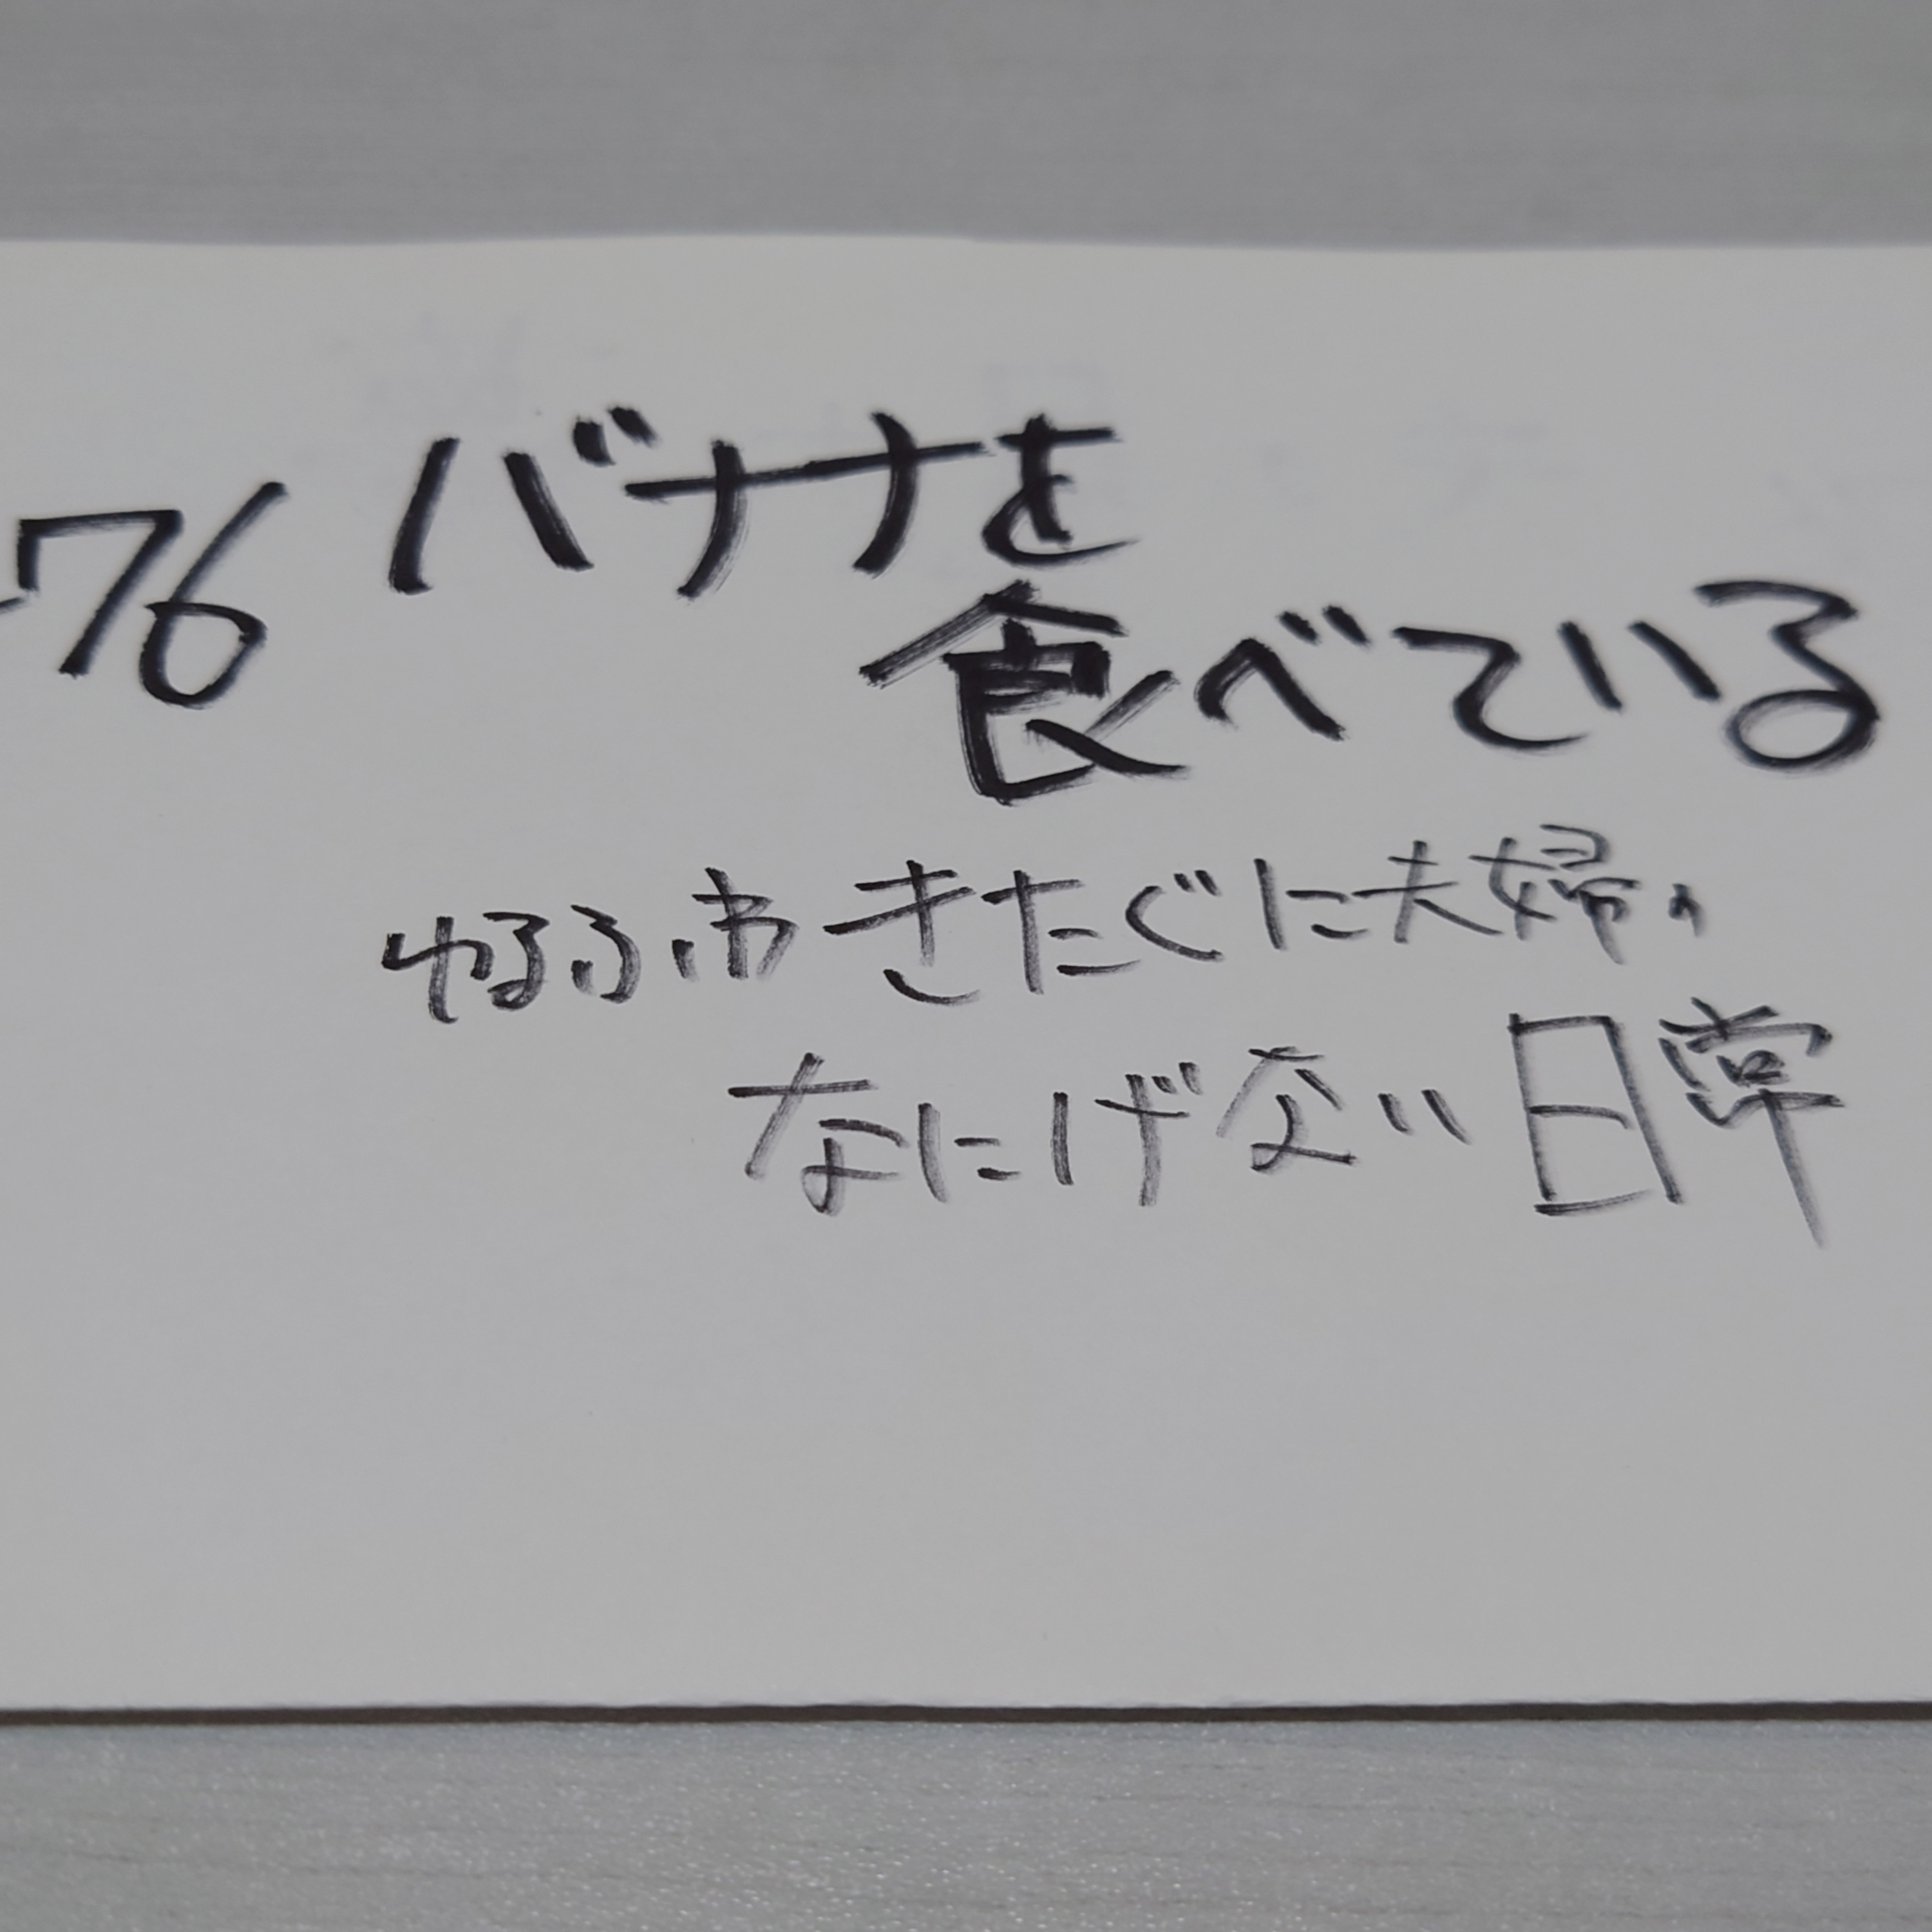 76 バナナを
食べている
ゆるふわきたぐに夫婦の
なにげない日常